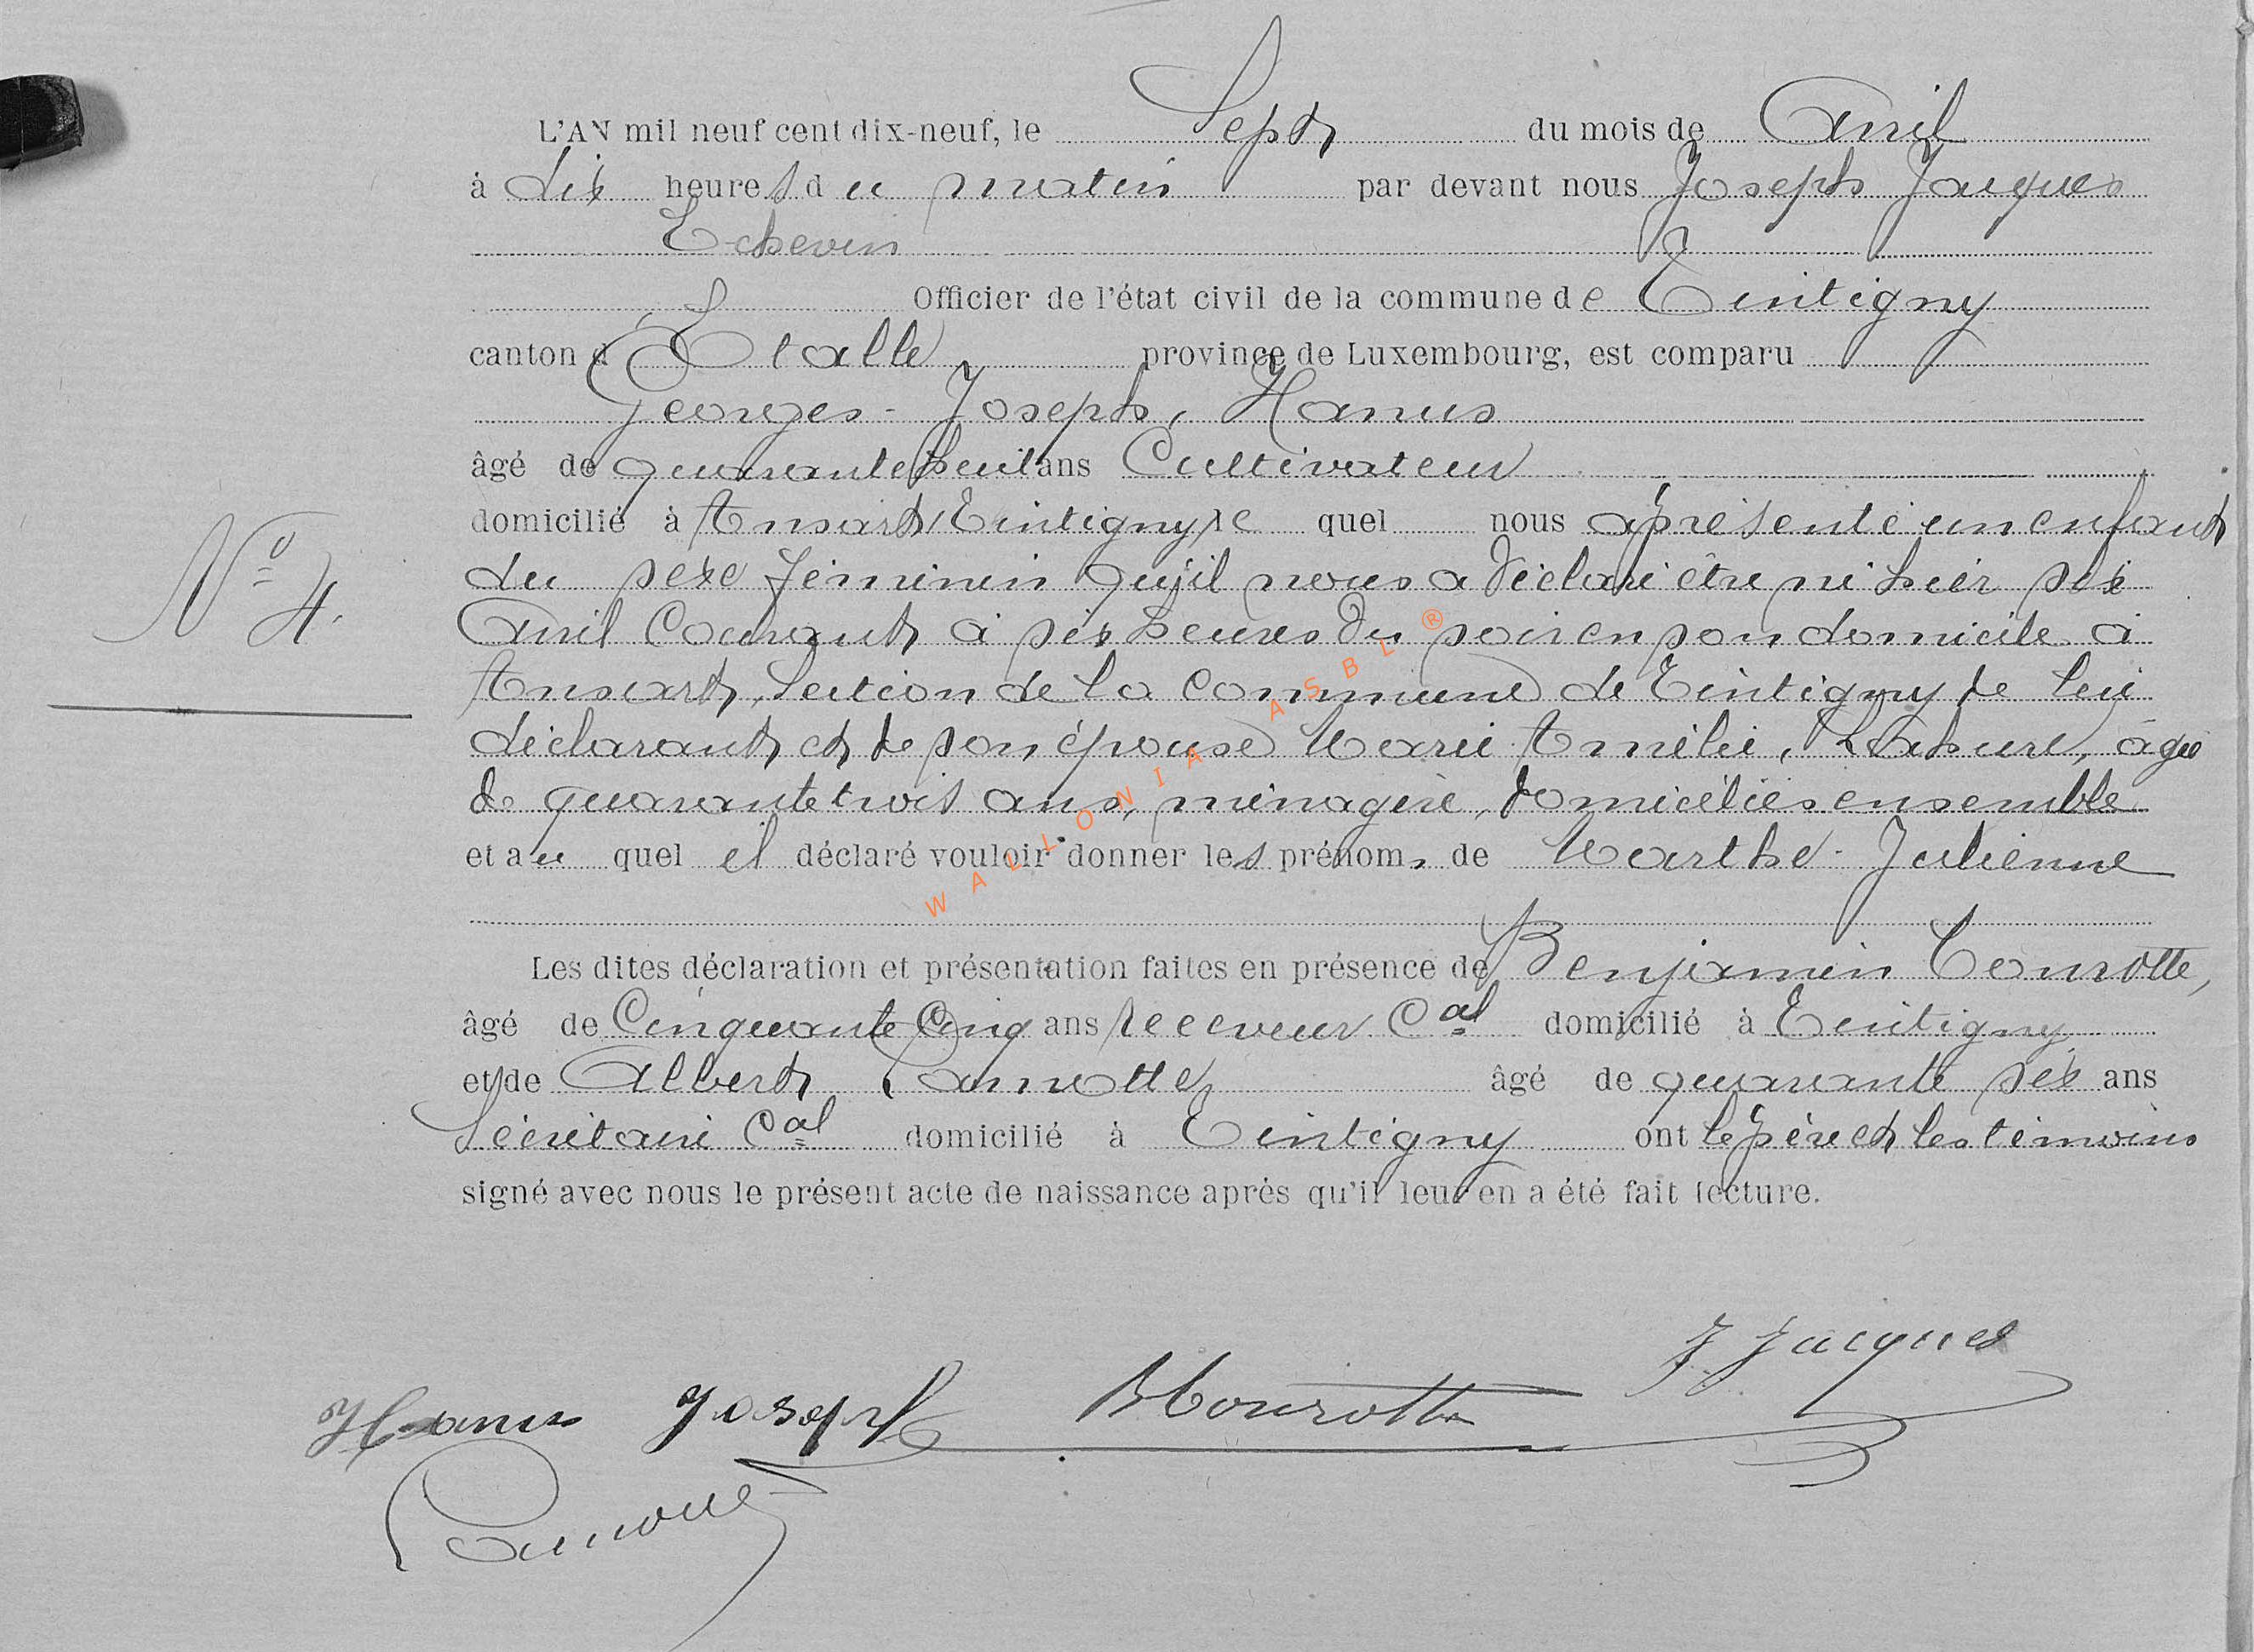 L'AN mil neuf cent dix-neuf, le Sept du mois de Avril
à dix heures du matin par devant nous Joseph Jacques
Echevin
Officier de l'état civil de la commune de Tintigny
canton d Etalle province de Luxembourg, est comparu
Georges-Joseph, Hanus
âgé de quarante huit ans Cultivateur
domicilié à Ansart, Tintigny le quel nous a présenté un enfant
N° 4.
du sexe féminin qu'il nous a déclaré être né hier six
Avril Courant à six heures du soir en son domicile à
Ansart, Section de la Commune de Tintigny de lui
déclarant et de son épouse Marie Amélie, âgée
de quarante trois ans, ménagère, domiciliés ensemble
et au quel il déclaré vouloir donner les prénoms de Marthe-Julienne
Les dites déclaration et présentation faites en présence de Benjamin Mourotte,
âgé de Cinquante Cinq ans receveur Cal domicilié à Tintigny
et de Albert Lannotte âgé de quarante six ans
Secrétaire Cal domicilié à Tintigny ont le père et les témoins
signé avec nous le présent acte de naissance après qu'il leur en a été fait lecture.
J Jacques
Hanus Joseph BMourotte
WALLONIA ASBL ®